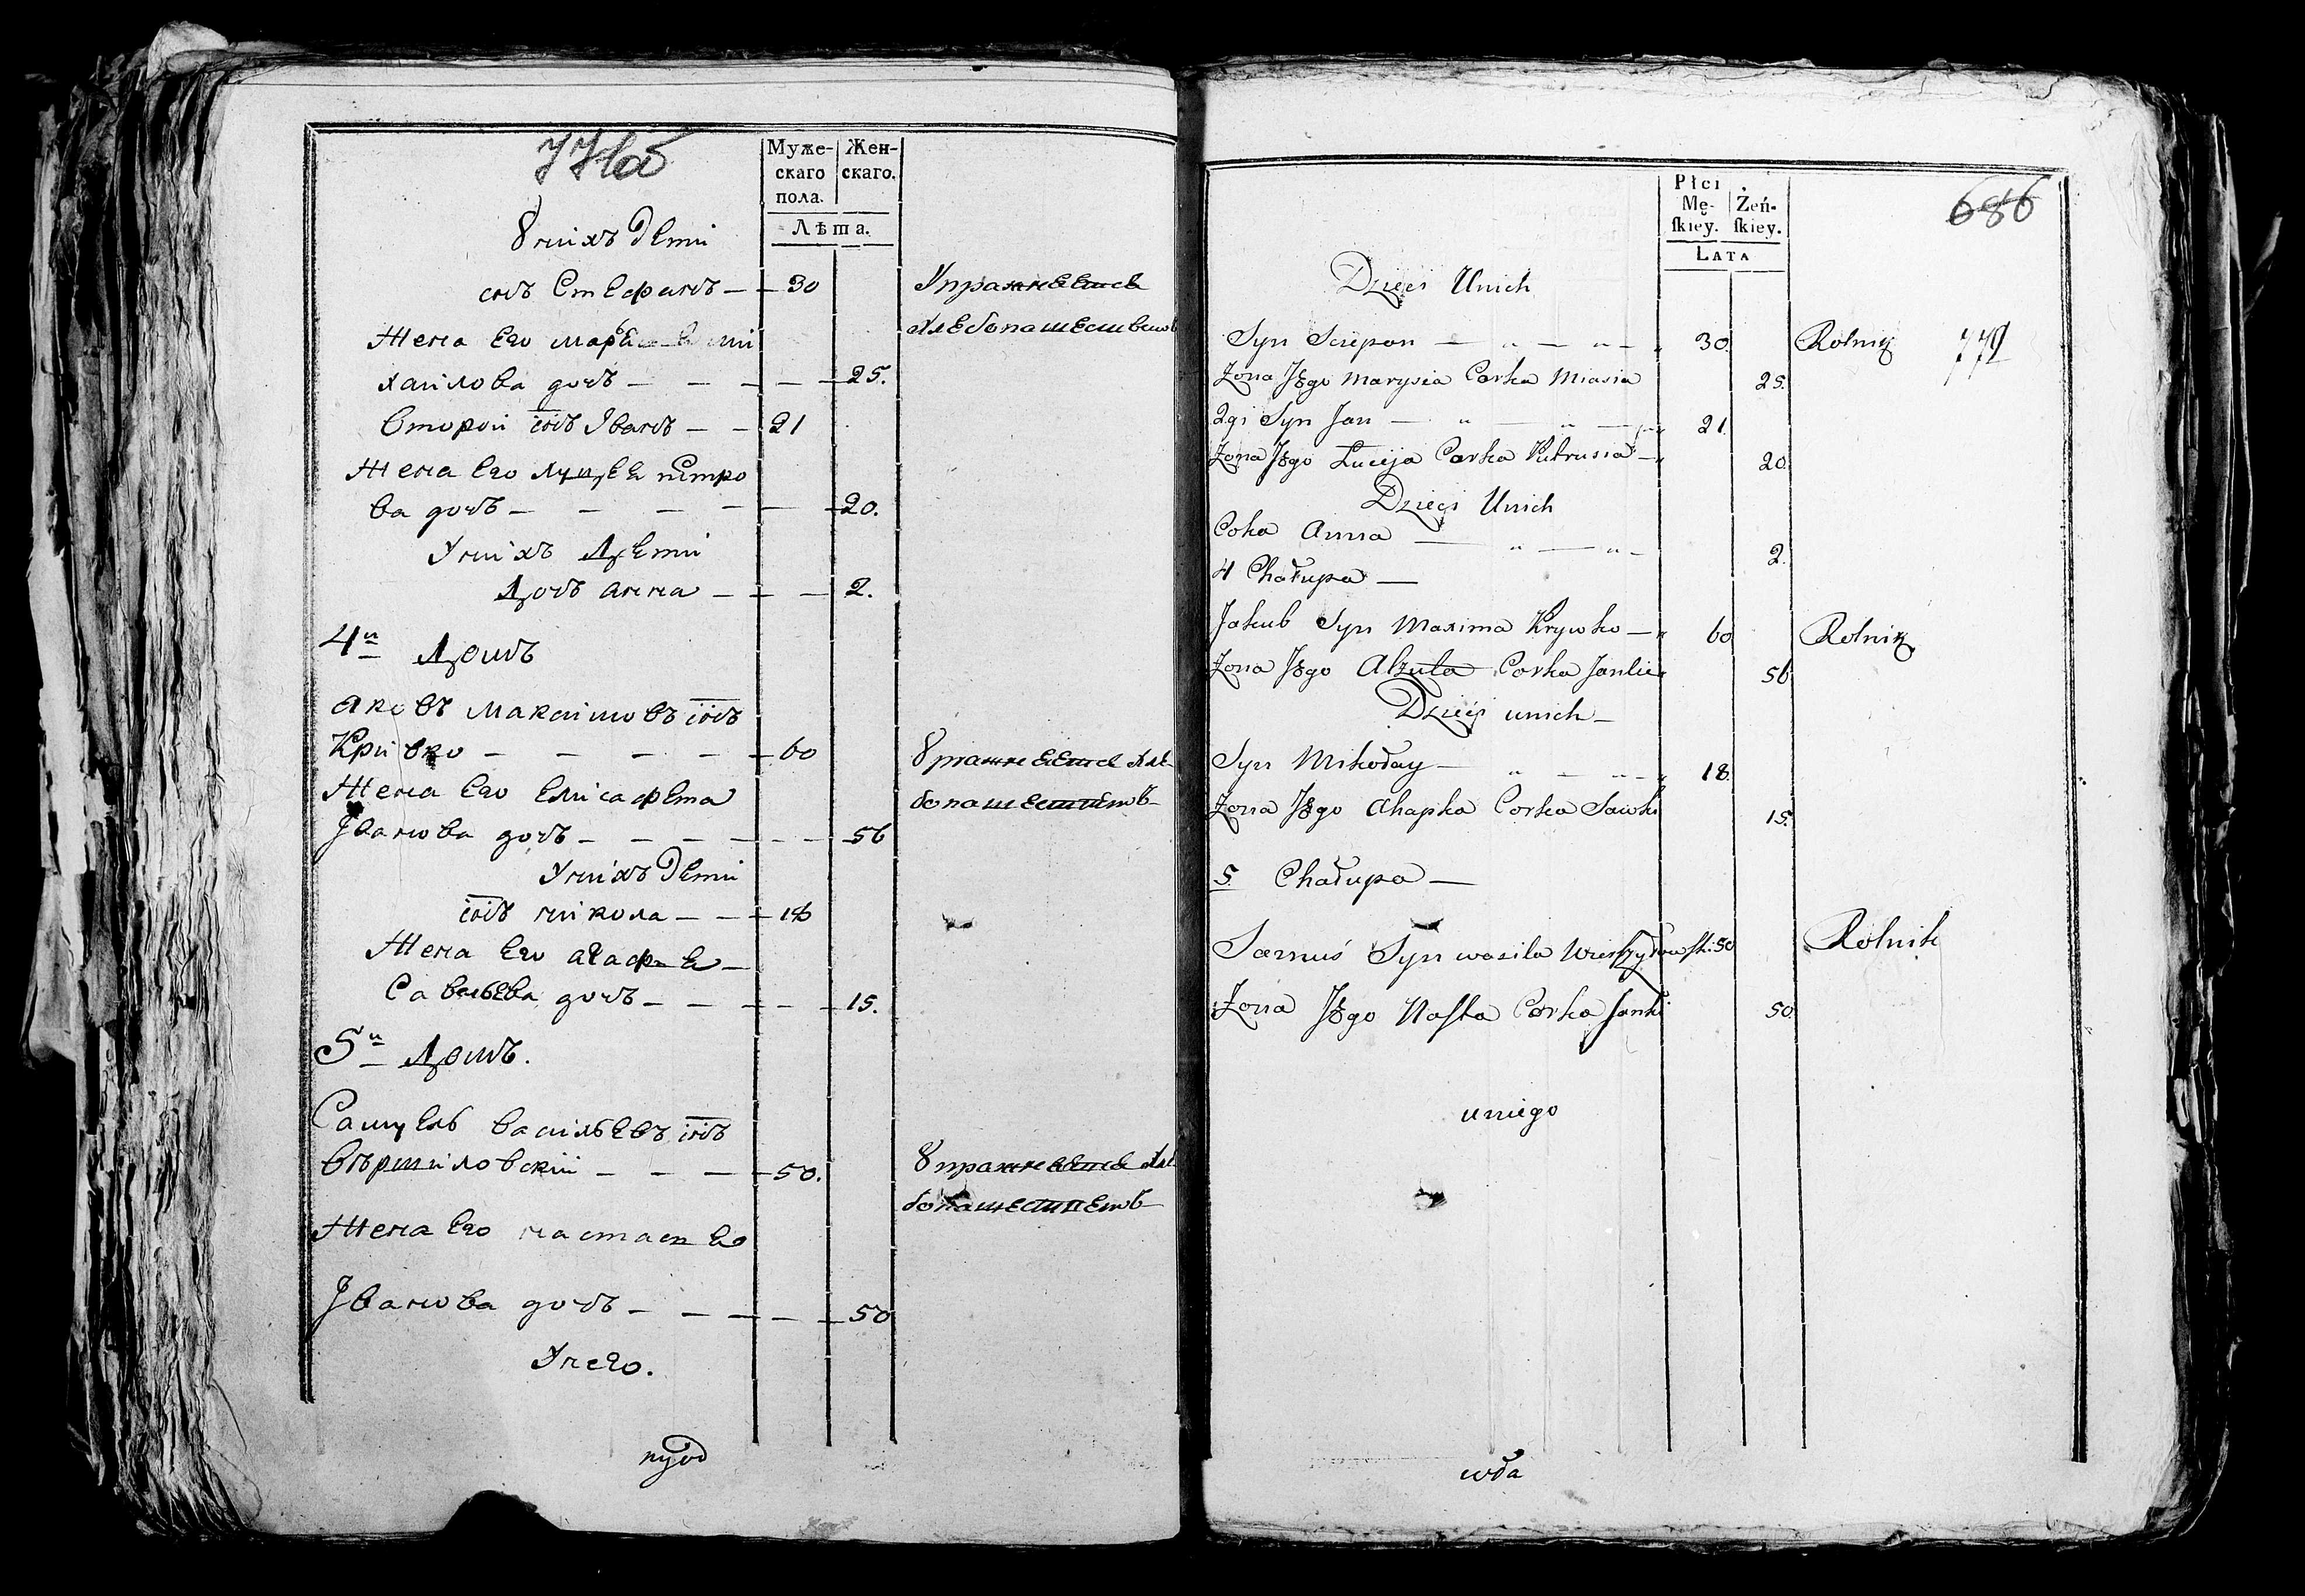 Муже-
скаго
пола.
Жен-
скаго.
Лѣта.
Уних дети
снъ Стефанъ — 30
Упражнеется
хлебопашеством
Жена Его марья ми
хаилова дочъ — — — — 25.
Второй снъ Іванъ — — 21
Жена Его Луцея петро
ва дочъ — — — — — 20.
Унихъ Дети
Дочъ анна — — — 2.
4й Домъ
Яковъ Максимовъ снъ
Кривко — — — — — 60
Упражнеется хле
бопашеством
Жена Его Елисафета
Іванова дочъ — — — — — 56
Унихъ Дети
снъ никола — — 18
Жена Его агафея —
Савельева дочъ — — — — 15.
5й Домъ.
Самуель васильевъ снъ
Вершиловский — — — 50.
Упражнеется хле
бопашеством
Жена Его настасея
Іванова дочъ — — — — — 50
Унего.
Płci
Mę-
ſkiey.
Żeń-
ſkiey.
LATA
686
772
Dzieci Unich
Syn Sciepan — „ — „ — „ 30. Rolnik
Zona Jego Marysia Corka Miasia 25.
2gi Syn Jan — „ — „ — „ 21.
Zona Jego Łucyja Corka Pietrusia — „ 20.
Dzieci Unich
Coka Anna — „ — „ — 2.
4 Chałupa —
Jakub Syn Maxima Krywko — „ 60 Rolnik
Zona Jego Alzuta Corka Jana 56
Dzieci unich —
Syn Mikołay — „ — „ — „ 18.
Zona Jego Ahapka Corka Sawki 15.
5. Chałupa —
Samuś Syn wasila Wierszyłowski 50 Rolnik
Zona Jego Naſta Corka Janki 50.
uniego
wda